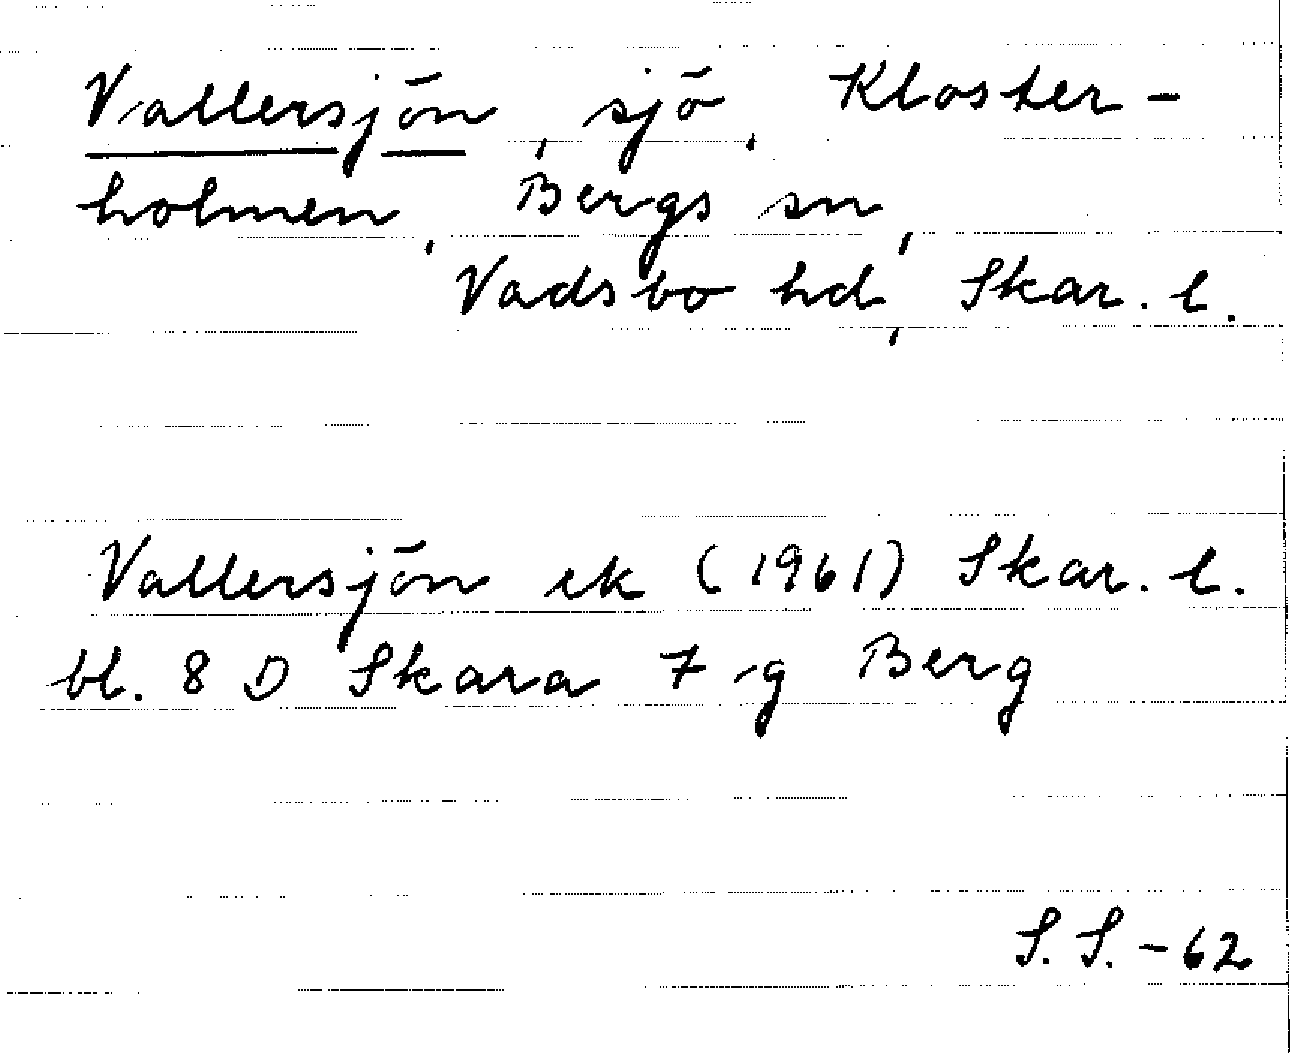 Vallersjön, sjö, Kloster-
holmen, Bergs sn,
Vadsbo hd, Skar. l.
Vallersjön ek (1961) Skar. l.
bl. 8 D Skara 7 g Berg
S. S. -62